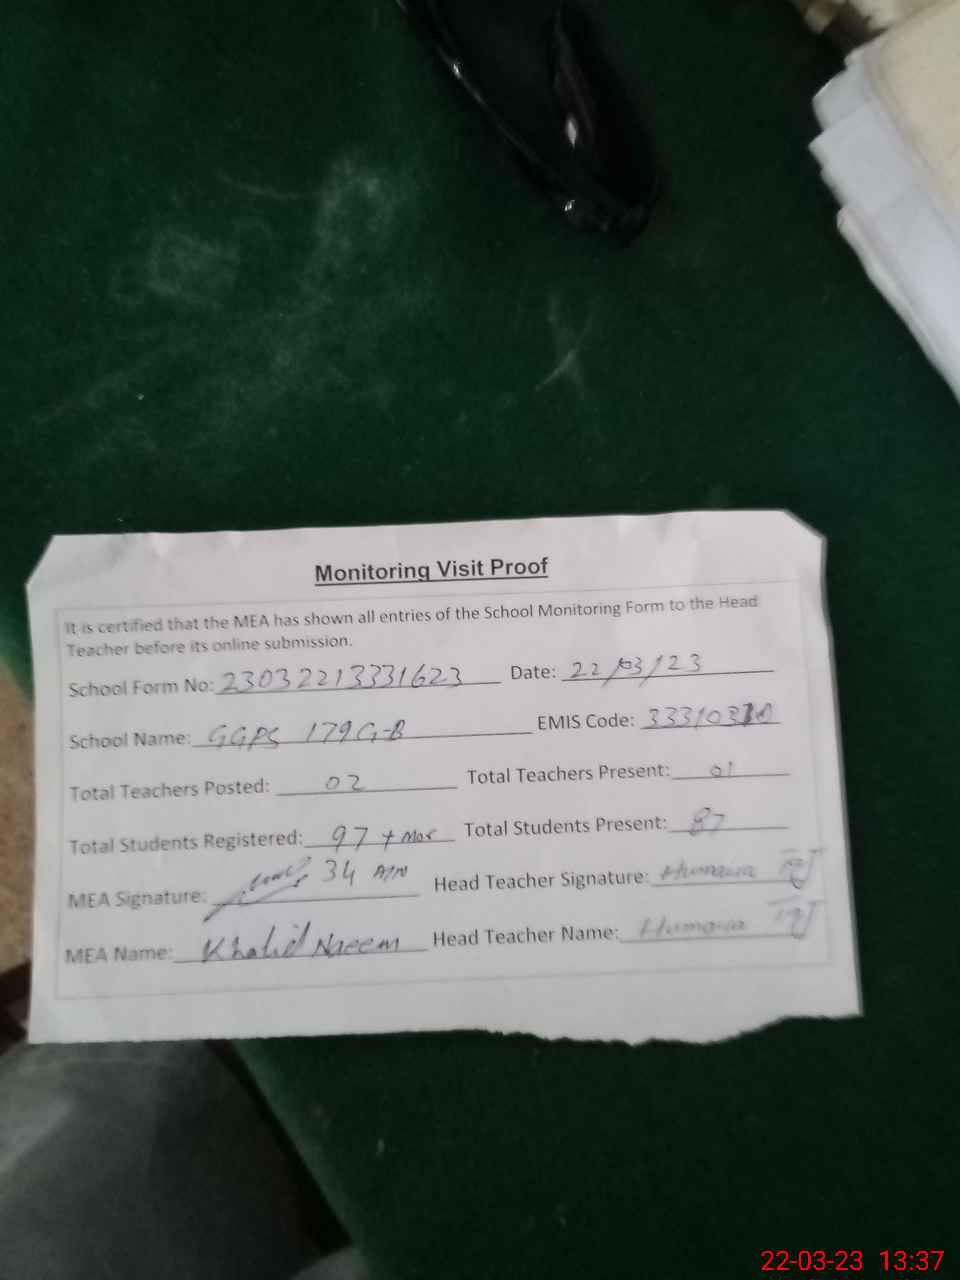 Monitoring Visit Proof
It is certified that the MEA has shown all entries of the School Monitoring Form to the Head
Teacher before its online submission.
School Form No: 23032213331623 Date: 22/03/23
School Name: GGPS 179 G-B EMIS Code:
Total Teachers Posted: 02 Total Teachers Present: 01
Total Students Registered: 97 + Total Students Present: 87
MEA Signature: 34 Head Teacher Signature: Humaira
MEA Name: Khalid Naeem Head Teacher Name: Humaira
22-03-23 13:37